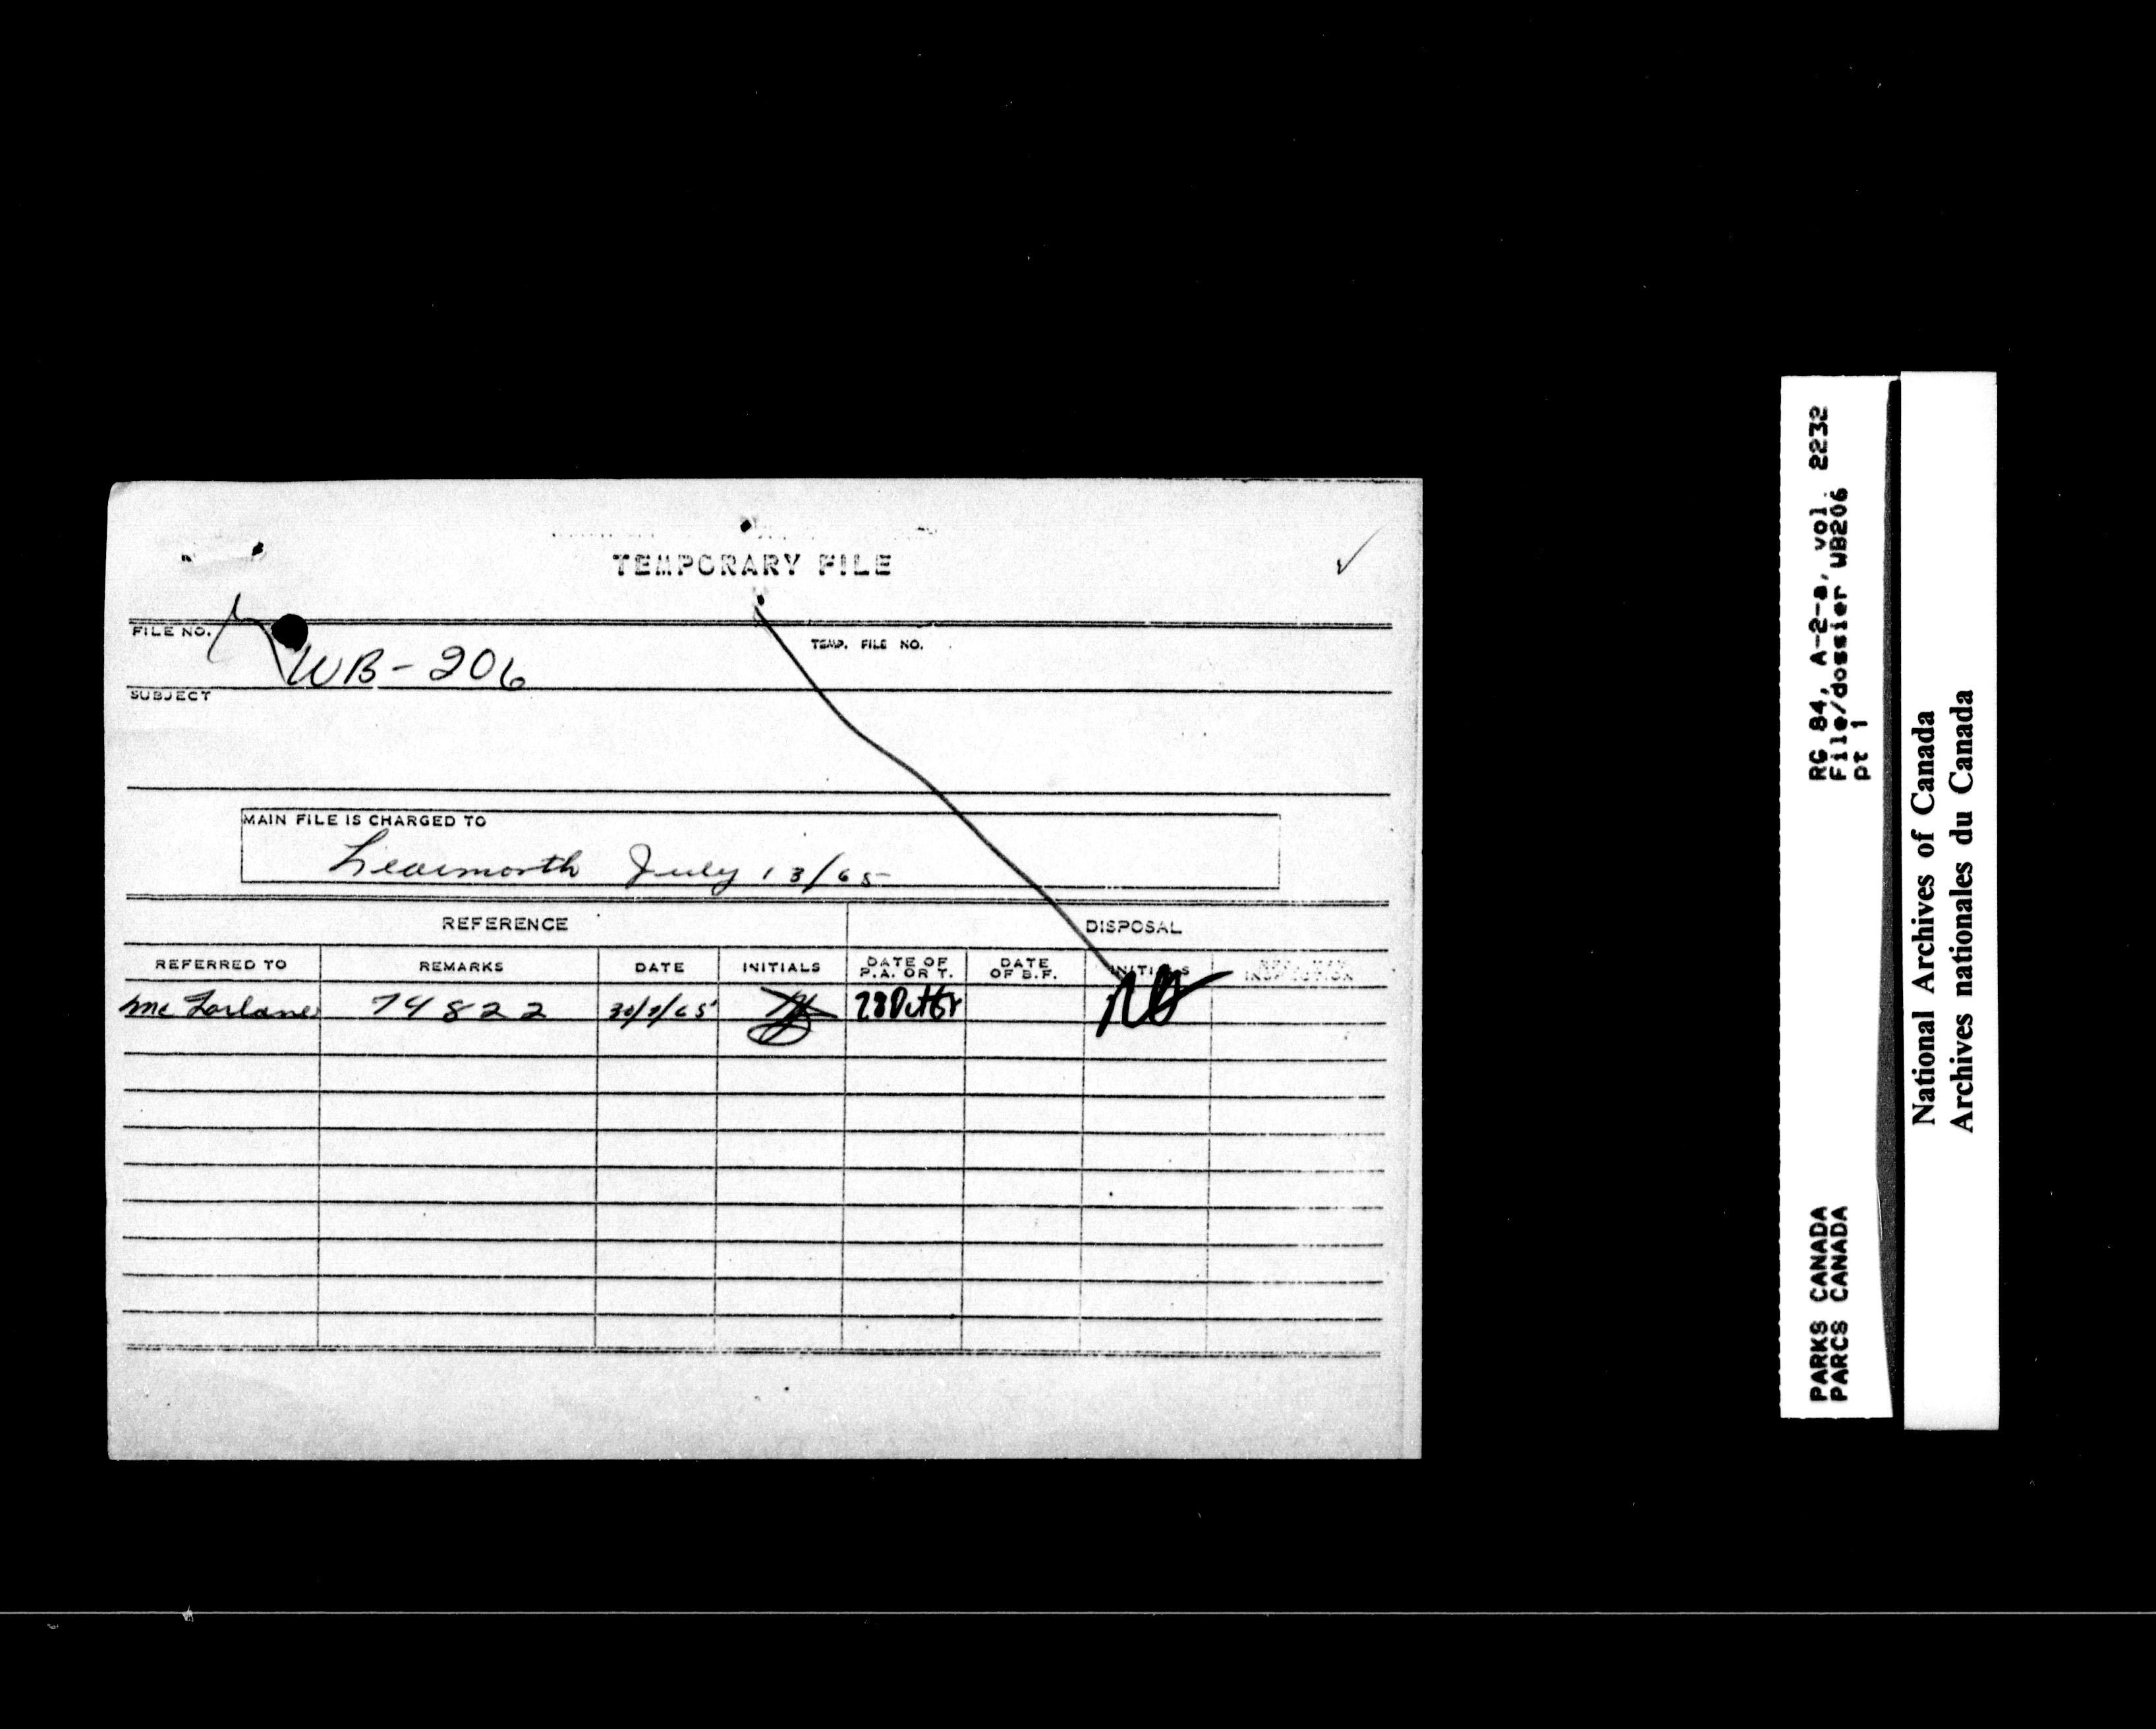 TEMPORARY FILE
FILE NO.
TEMP. FILE NO.
WB-206
SUBJECT
MAIN FILE IS CHARGED TO
Learmonth July 13/65
REFERENCE DISPOSAL
REFERRED TO REMARKS DATE INITIALS DATE OF P.A. OR T. DATE OF B.F. INITIALS
McFarlane 74822 30/7/65
RG 84, A-2-a, vol. 2232
File/dossier WB206
pt 1
PARKS CANADA
PARCS CANADA
National Archives of Canada
Archives nationales du Canada